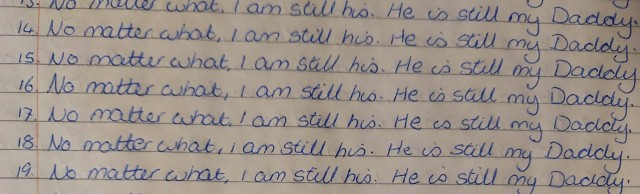 13. No matter what, I am still his. He is still my Daddy.
14. No matter what, I am still his. He is still my Daddy.
15. No matter what, I am still his. He is still my Daddy
16. No matter what, I am still his. He is still my Daddy.
17. No matter what, I am still his. He is still my Daddy.
18. No matter what, i am still his. He is still my Daddy.
19. No matter what, I am still his. He is still my Daddy.